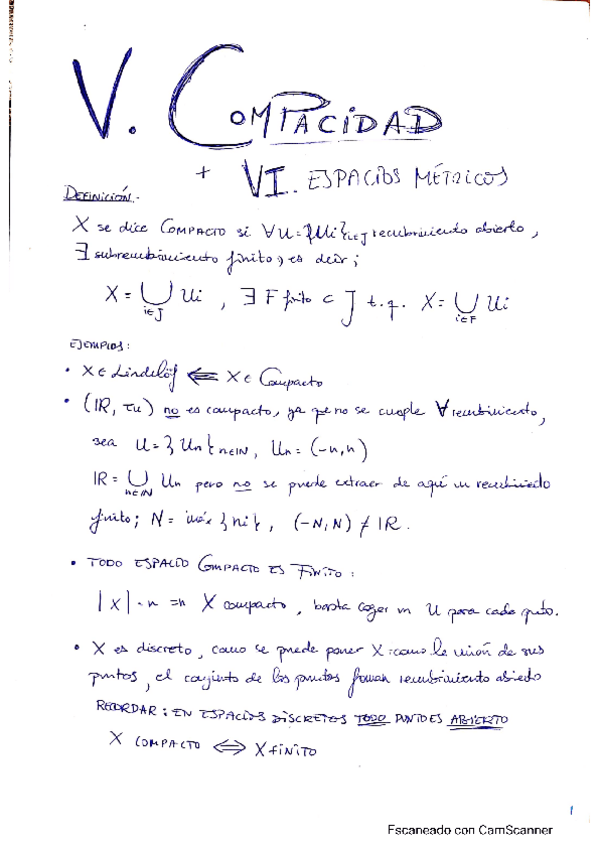 V. COMPACIDAD
+ VI. ESPACIOS MÉTRICOS
DEFINICIÓN.-
X se dice COMPACTO si ∀U={Ui}i∈J recubrimiento abierto,
∃ subrecubrimiento finito, es decir;
X = ⋃i∈J Ui , ∃ F finito ⊂ J t.q. X = ⋃i∈F Ui
EJEMPLOS:
• X ∈ Lindelöf ⇐ X ∈ Compacto
• (IR, τu) no es compacto, ya que no se cumple ∀ recubrimiento,
sea U = {Un}n∈IN, Un = (-n,n)
IR = ⋃n∈IN Un pero no se puede extraer de aquí un recubrimiento
finito; N = máx {ni}, (-N,N) ≠ IR.
• TODO ESPACIO COMPACTO ES FINITO:
|X| = n ⇒ X compacto, basta coger un U para cada punto.
• X es discreto, como se puede poner X como la unión de sus
puntos, el conjunto de los puntos forman recubrimiento abierto
RECORDAR: EN ESPACIOS DISCRETOS TODO PUNTO ES ABIERTO
X COMPACTO ⇔ X FINITO
1
Escaneado con CamScanner